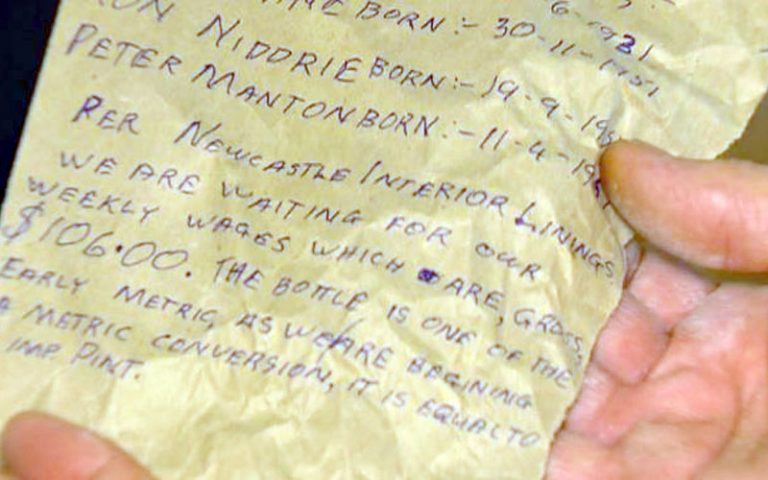 BORN:- 30-11-1951
RON NIDDRIE BORN:- 19-9-19
PETER MANTON BORN:- 11-4-19
PER NEWCASTLE INTERIOR LININGS
WE ARE WAITING FOR OUR
WEEKLY WAGES WHICH ARE, GROSS,
$106.00. THE BOTTLE IS ONE OF THE
EARLY METRIC, AS WE ARE BEGINING
A METRIC CONVERSION, IT IS EQUAL TO
IMP. PINT.